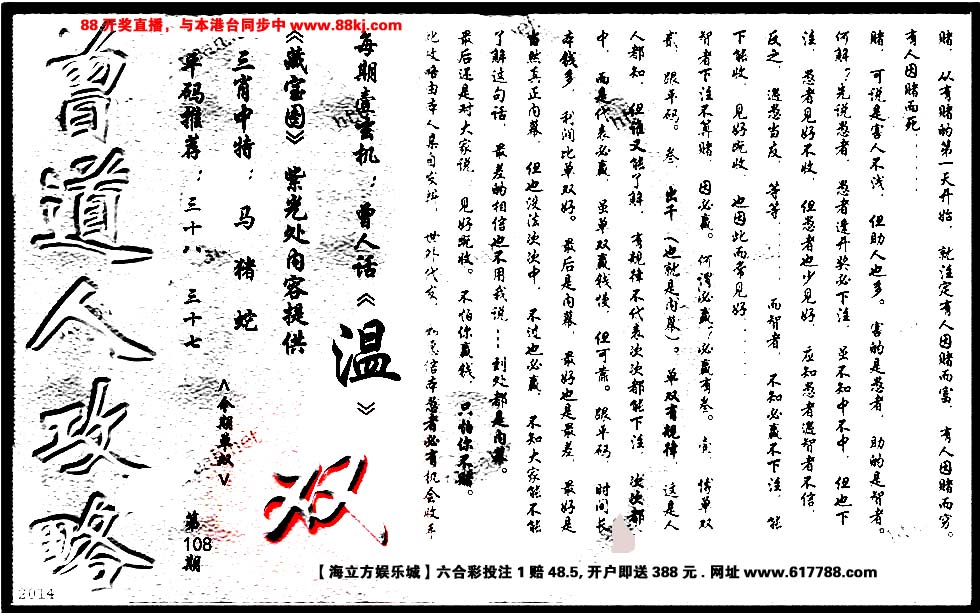 88开奖直播，与本港台同步中 www.88kj.com
赌，从有赌的第一天开始，就注定有人因赌而富，有人因赌而穷。
有人因赌而死......
赌，可说是害人不浅，但助人也多。害的是愚者，助的是智者。
何解？先说愚者，愚者逢开奖必下注，虽不知中不中，但也下
注，愚者见好不收，但愚者也少见好，应知愚者遇智者不信，
反之，遇愚当度，等等......而智者，不知必赢不下注，能
下能收，见好既收，也因此而常见好......
智者下注不算赌，因必赢。何谓必赢？必赢有叁。壹，博单双
贰，跟单码。叁，出千（也就是内幕）。单双有规律，这是人
人都知，但谁又能了解，有规律不代表次次都能下注，次次都
中，而是代表必赢，虽单双赢钱慢，但可靠。跟单码，时间长
本钱多，利润比单双好。最后是内幕，最好也是最差，最好是
当然真正内幕，但也没法次次中，不过也必赢，不知大家能不能
了解这句话，最差的相信也不用我说...到处都是内幕。
最后还是对大家说，见好既收。不怕你赢钱，只怕你不赌。
此攻略由本人亲自发放，世外代友，
每期毒玄机：曾人话《温》
《藏宝图》紫光处内容提供
三肖中特：马 猪 蛇
单码推荐：三十八 三十七
<今期单双>
双
第108期
曾道人攻略
【海立方娱乐城】六合彩投注1赔48.5,开户即送388元.网址www.617788.com
2014